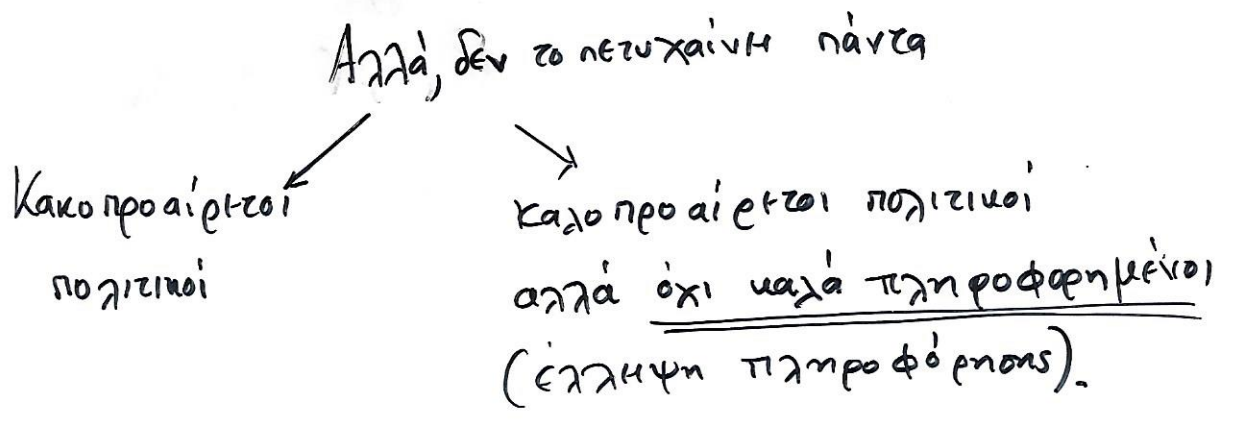 Αλλά, δεν το πετυχαίνει πάντα
Κακοπροαίρετοι
πολιτικοί
καλοπροαίρετοι πολιτικοί
αλλά όχι καλά πληροφορημένοι
(έλλειψη πληροφόρησης).